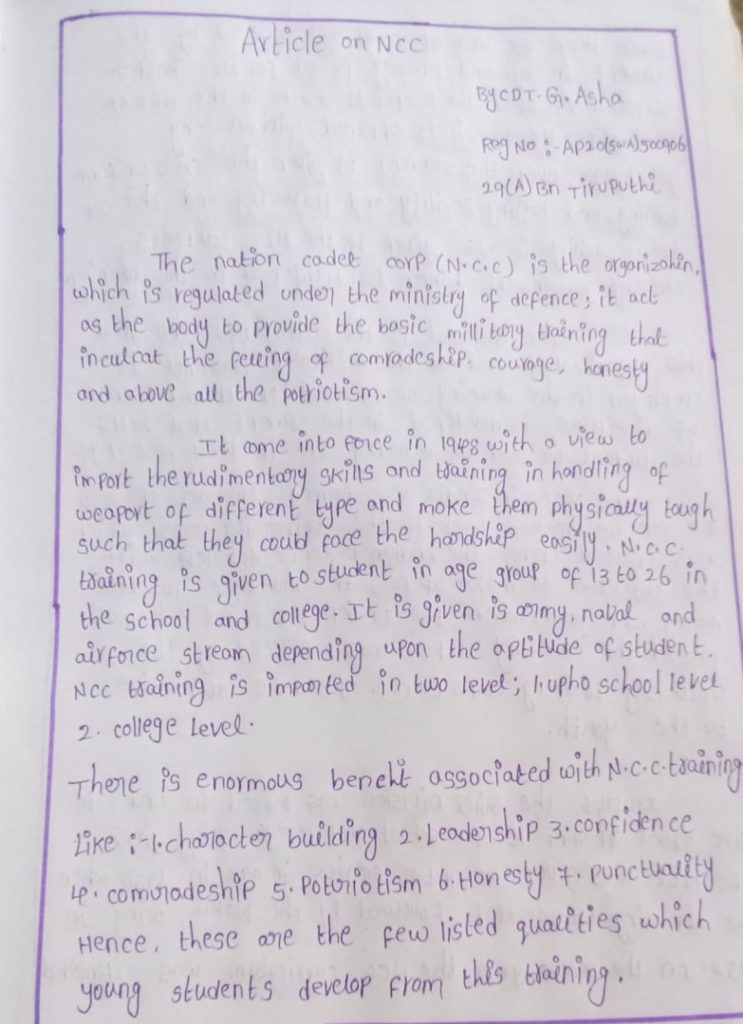 Article on NCC
By CDT. G. Asha
Reg No :- AP20(SWA)500906
29(A) Bn Tiruputhi
The nation cadet corp (N.C.C) is the organizohin,
which is regulated under the ministry of defence; it act
as the body to provide the basic millitary training that
inculcat the feeling of comradeship, courage, honesty
and above all the patriotism.
It came into force in 1948 with a view to
import the rudimentary skills and training in handling of
weaport of different type and make them physically tough
such that they could face the hardship easily. N.C.C.
training is given to student in age group of 13 to 26 in
the school and college. It is given is army, naval and
airforce stream depending upon the aptitude of student.
NCC training is imparted in two level; 1. upho school level
2. college level.
There is enormous benehit associated with N.C.C. training
Like :- 1. character building 2. Leadership 3. confidence
4. comradeship 5. Patriotism 6. Honesty 7. punctuality
Hence, these are the few listed qualities which
young students develop from this training.